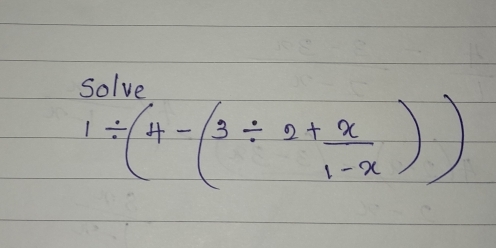 Solve
1 ÷ (4 - (3 ÷ 2 + x/(1-x)))